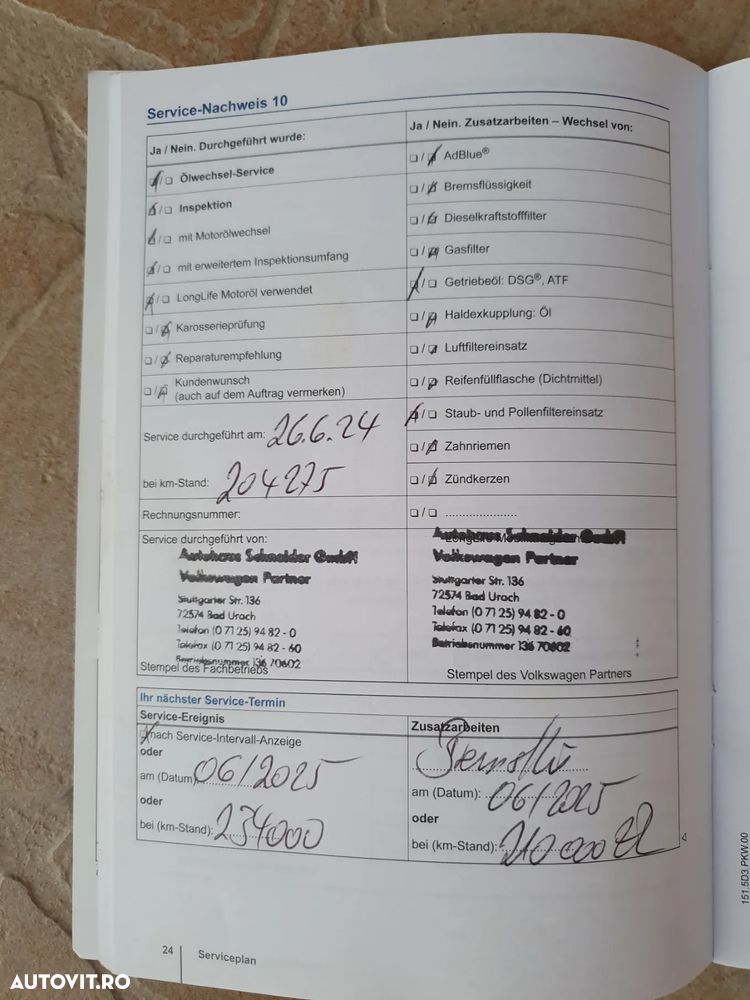 Service-Nachweis 10
Ja / Nein. Durchgeführt wurde:
☒/☐ Ölwechsel-Service
☒/☐ Inspektion
☒/☐ mit Motorölwechsel
☒/☐ mit erweitertem Inspektionsumfang
☒/☐ LongLife Motoröl verwendet
☐/☒ Karosserieprüfung
☐/☒ Reparaturempfehlung
☐/☒ Kundenwunsch
(auch auf dem Auftrag vermerken)
Service durchgeführt am: 26.6.24
bei km-Stand: 204275
Rechnungsnummer:
Service durchgeführt von:
Autohaus Schneider GmbH
Volkswagen Partner
Stuttgarter Str. 136
72574 Bad Urach
Telefon (0 71 25) 94 82 - 0
Telefax (0 71 25) 94 82 - 60
Betriebsnummer 136 70602
Stempel des Fachbetriebs
Ja / Nein. Zusatzarbeiten – Wechsel von:
☐/☒ AdBlue®
☐/☒ Bremsflüssigkeit
☐/☒ Dieselkraftstofffilter
☐/☒ Gasfilter
☒/☐ Getriebeöl: DSG®, ATF
☐/☒ Haldexkupplung: Öl
☐/☒ Luftfiltereinsatz
☐/☒ Reifenfüllflasche (Dichtmittel)
☒/☐ Staub- und Pollenfiltereinsatz
☐/☒ Zahnriemen
☐/☒ Zündkerzen
☐/☐ ......................
Autohaus Schneider GmbH
Volkswagen Partner
Stuttgarter Str. 136
72574 Bad Urach
Telefon (0 71 25) 94 82 - 0
Telefax (0 71 25) 94 82 - 60
Betriebsnummer 136 70602
Stempel des Volkswagen Partners
Ihr nächster Service-Termin
Service-Ereignis
☒ nach Service-Intervall-Anzeige
oder
am (Datum): 06/2025
oder
bei (km-Stand): 234000
Zusatzarbeiten
am (Datum): 06/2025
oder
bei (km-Stand): 210 000
24
Serviceplan
151.5D3.PKW.00
AUTOVIT.RO